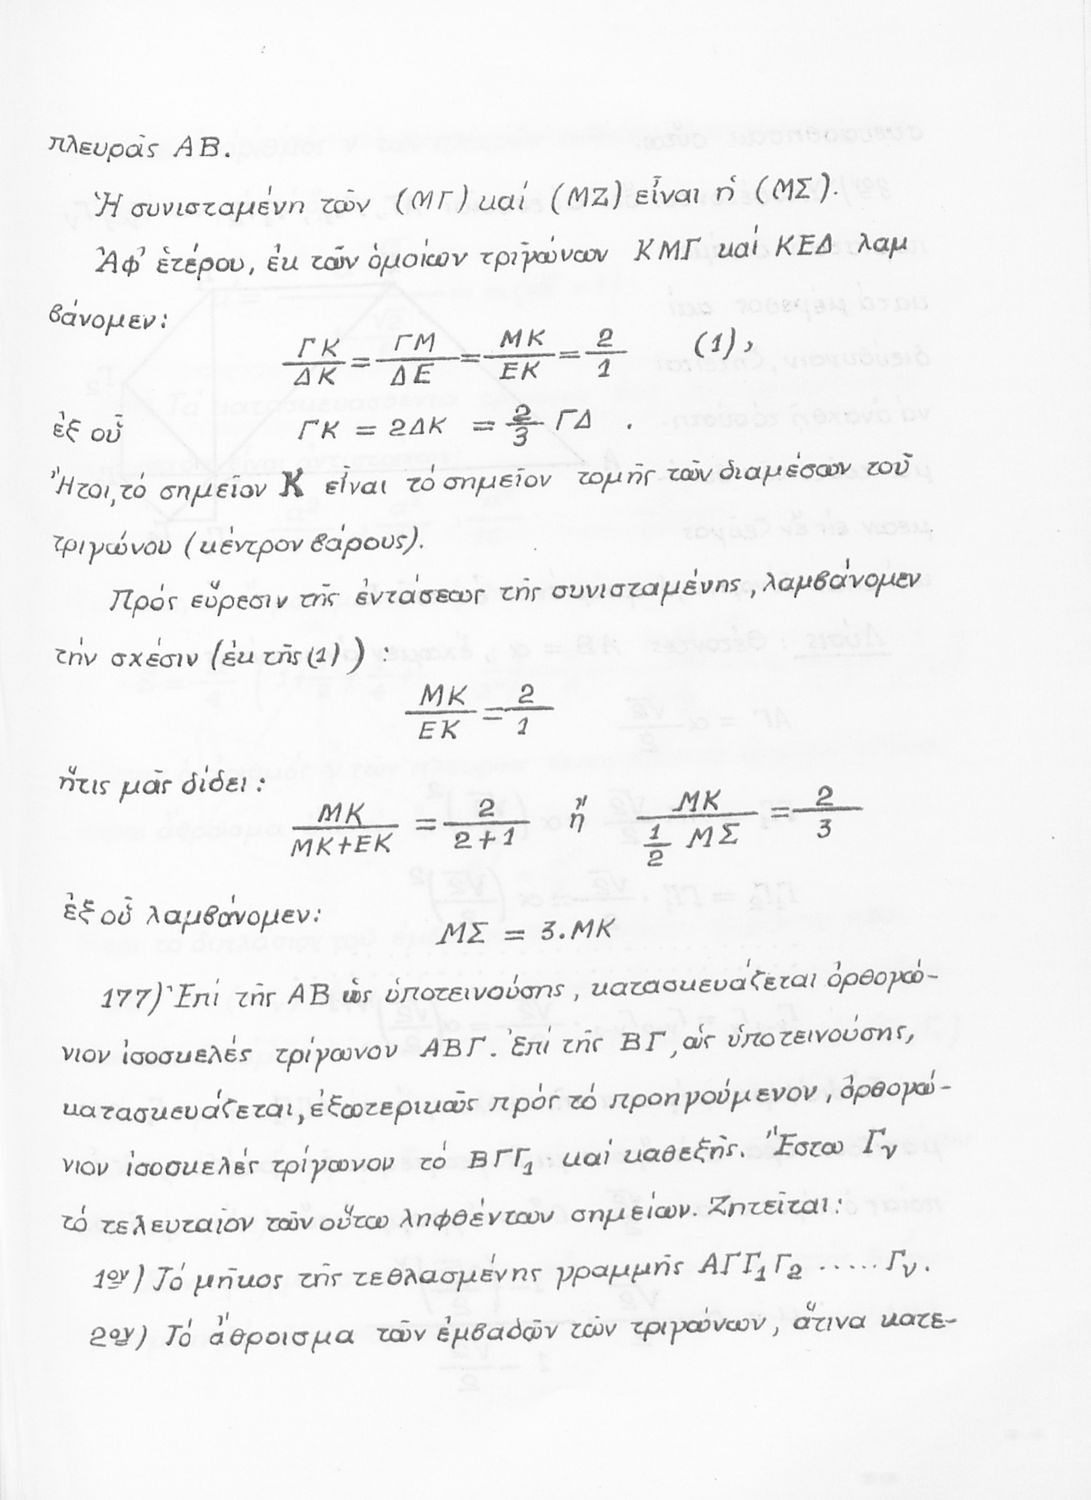 πλευρᾶς ΑΒ.
Ἡ συνισταμένη τῶν (ΜΓ) καί (ΜΖ) εἶναι ἡ (ΜΣ).
Ἀφ' ἑτέρου, ἐκ τῶν ὁμοίων τριγώνων ΚΜΓ καί ΚΕΔ λαμ
βάνομεν:
ΓΚ/ΔΚ = ΓΜ/ΔΕ = ΜΚ/ΕΚ = 2/1 (1),
ἐξ οὗ ΓΚ = 2ΔΚ = 2/3 ΓΔ .
Ἤτοι, τό σημεῖον Κ εἶναι τό σημεῖον τομῆς τῶν διαμέσων τοῦ
τριγώνου (κέντρον βάρους).
Πρός εὕρεσιν τῆς ἐντάσεως τῆς συνισταμένης, λαμβάνομεν
τήν σχέσιν (ἐκ τῆς (1) ) :
ΜΚ/ΕΚ = 2/1
ἥτις μᾶς δίδει :
ΜΚ/(ΜΚ+ΕΚ) = 2/(2+1) ἤ ΜΚ/(1/2 ΜΣ) = 2/3
ἐξ οὗ λαμβάνομεν:
ΜΣ = 3.ΜΚ
177) Ἐπί τῆς ΑΒ ὡς ὑποτεινούσης, κατασκευάζεται ὀρθογώ-
νιον ἰσοσκελές τρίγωνον ΑΒΓ. Ἐπί τῆς ΒΓ, ὡς ὑποτεινούσης,
κατασκευάζεται, ἐξωτερικῶς πρός τό προηγούμενον, ὀρθογώ-
νιον ἰσοσκελές τρίγωνον τό ΒΓΓ₁ καί καθεξῆς. Ἔστω Γᵥ
τό τελευταῖον τῶν οὕτω ληφθέντων σημείων. Ζητεῖται:
1ον) Τό μῆκος τῆς τεθλασμένης γραμμῆς ΑΓΓ₁Γ₂ ..... Γᵥ.
2ον) Τό ἄθροισμα τῶν ἐμβαδῶν τῶν τριγώνων, ἅτινα κατε-